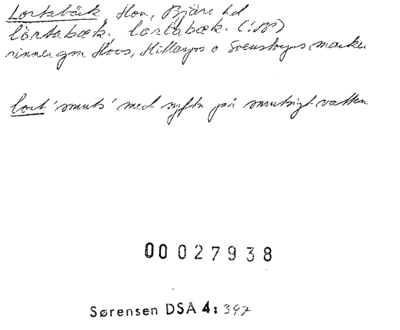 Lortabäck, Hov, Bjäre hd
lòrtabæk, lórtabæk. (:ß)
rinner gm Hovs, Hillarps o Svenstorps marker
lort 'smuts' med syftn på smutsigt vatten
00 027938
Sørensen DSA 4: 347